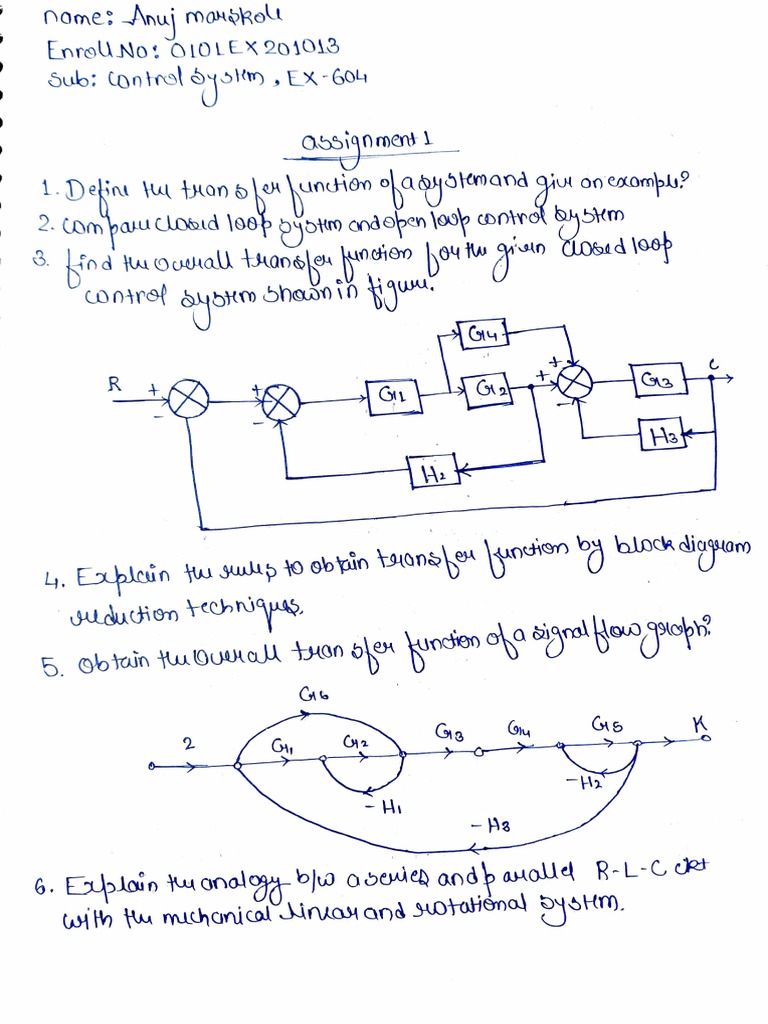 name: Anuj marskole
Enroll No: 0101EX201013
Sub: control system, EX-604
assignment 1
1. Define the transfer function of a system and give an example?
2. compare closed loop system and open loop control system
3. find the overall transfer function for the given closed loop
control system shown in figure.
G4
R + - + - G1 G2 + + - G3 C
H3
H2
4. Explain the rules to obtain transfer function by block diagram
reduction techniques.
5. obtain the overall transfer function of a signal flow graph?
G6
2 G1 G2 G3 G4 G5 K
-H1 -H2
-H3
6. Explain the analogy b/w a series and parallel R-L-C ckt
with the mechanical linear and rotational system.